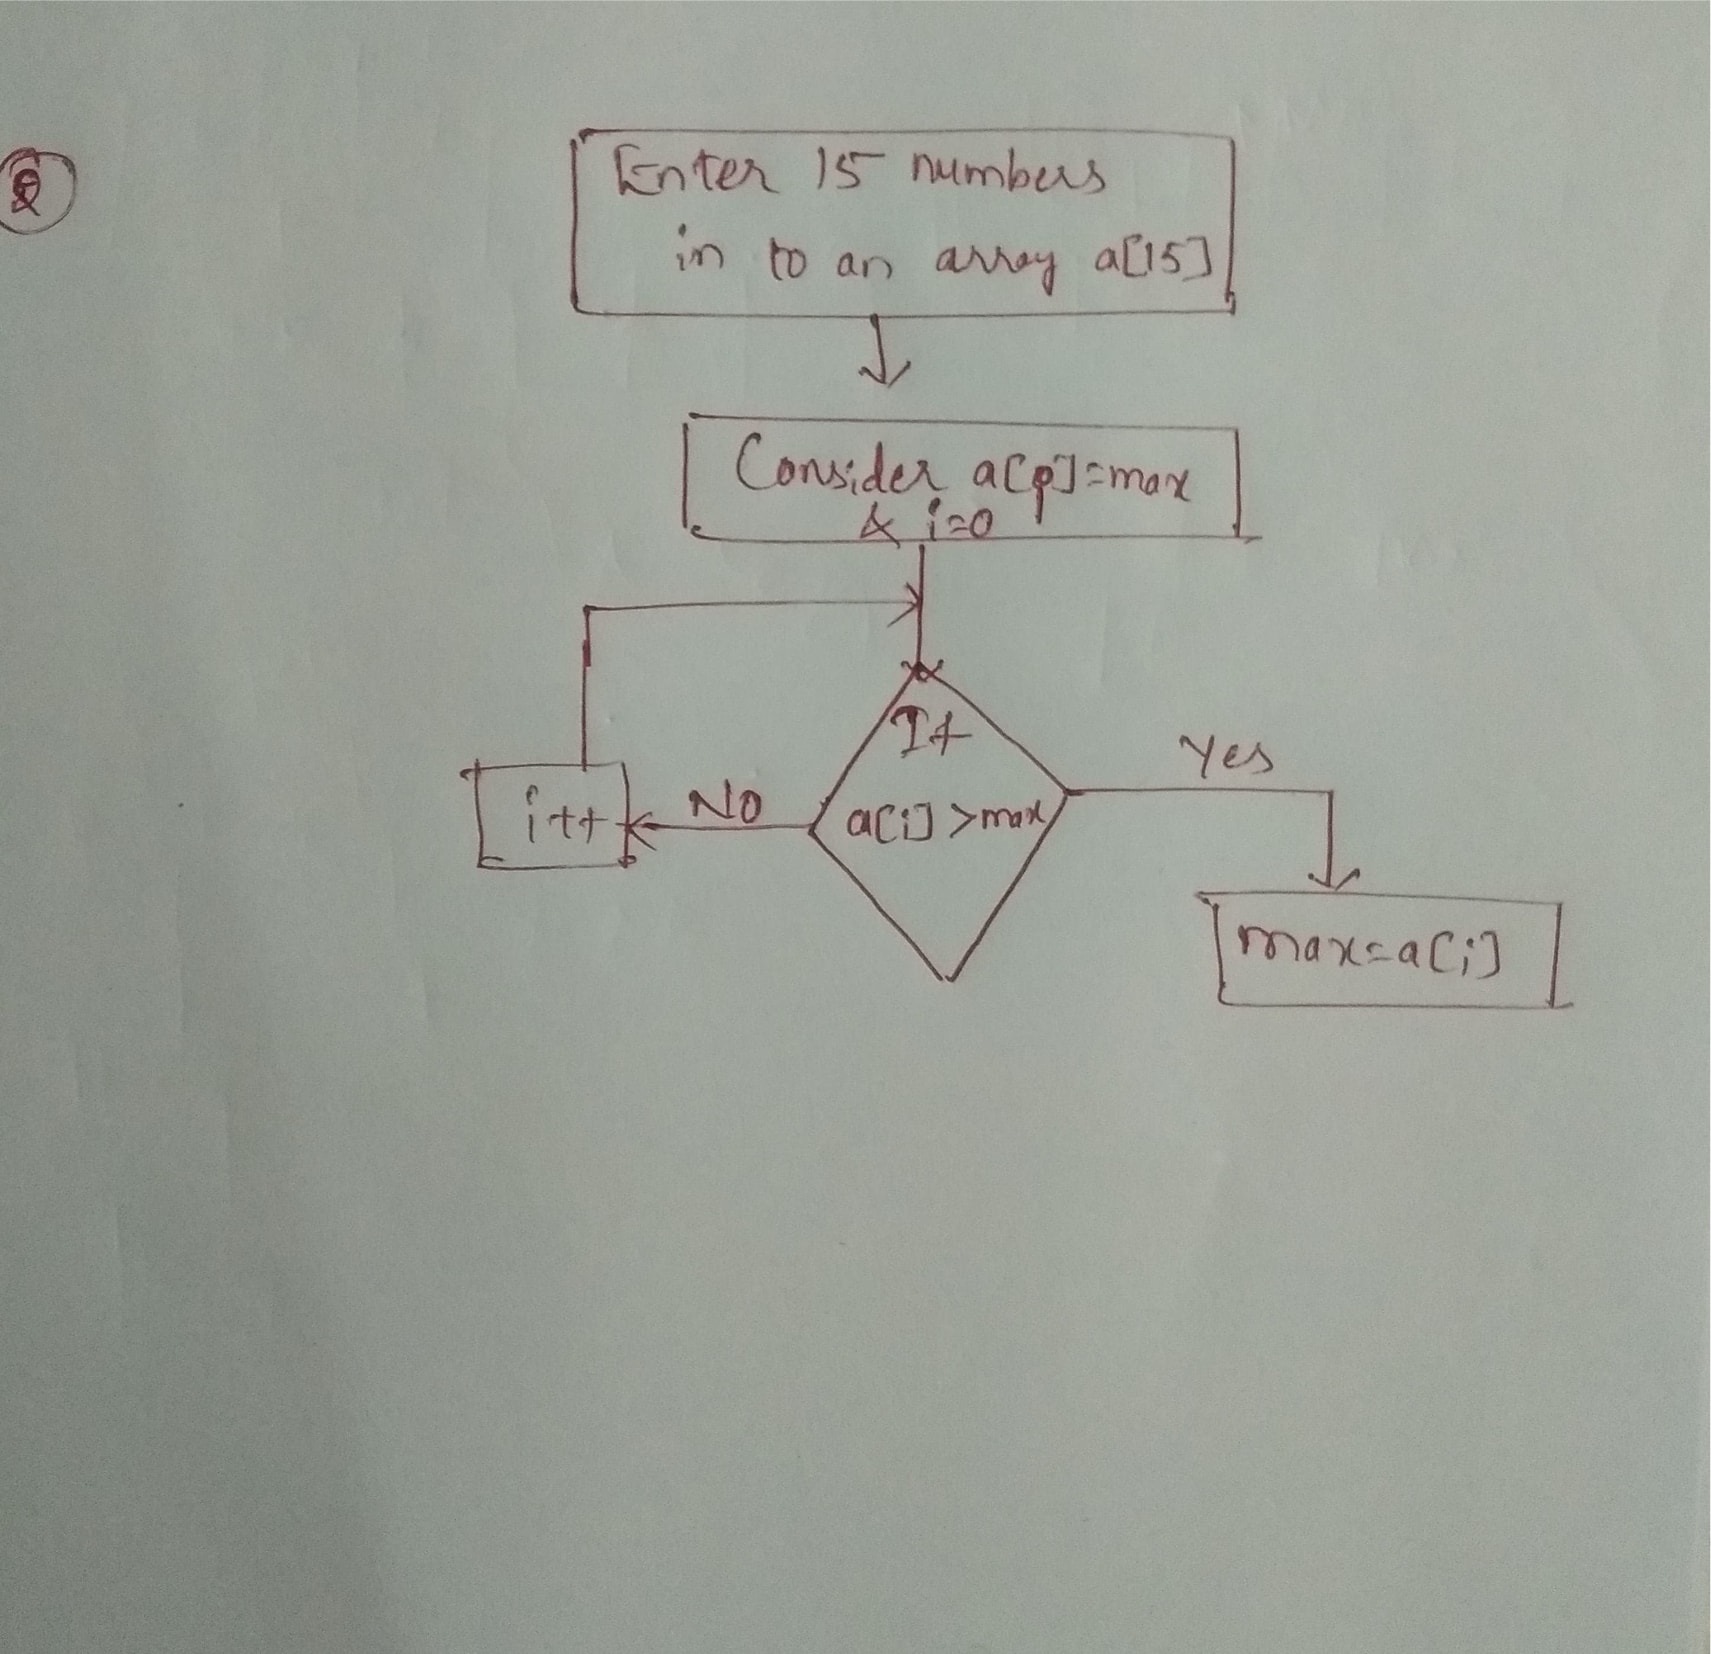 Enter 15 numbers
in to an array a[15]
Consider a[p]=max
& i=0
If
a[i] >max
Yes
NO
i++
max=a[i]